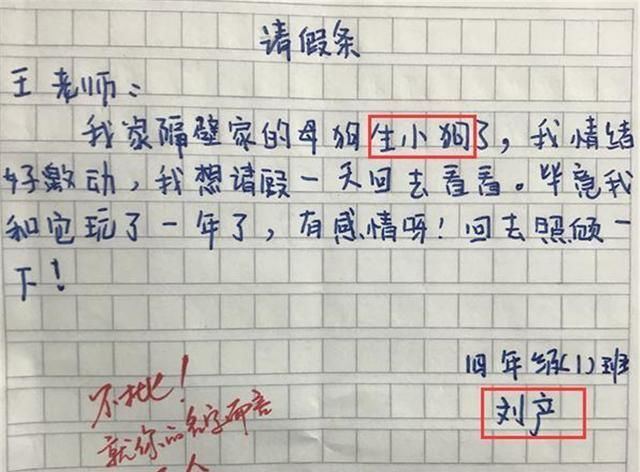 请假条
王老师：
我家隔壁家的母狗生小狗了，我情绪
好激动，我想请假一天回去看看。毕竟我
和它玩了一年了，有感情呀！回去照顾一
下！
四年级(1)班
刘产
不批！
就你的名字而言
人